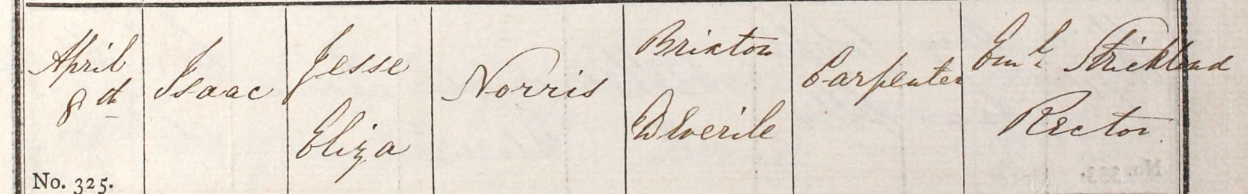 April
8th
No. 325.
Isaac
Jesse
Eliza
Norris
Brixton
Deverile
Carpenter
Eml Strickland
Rector